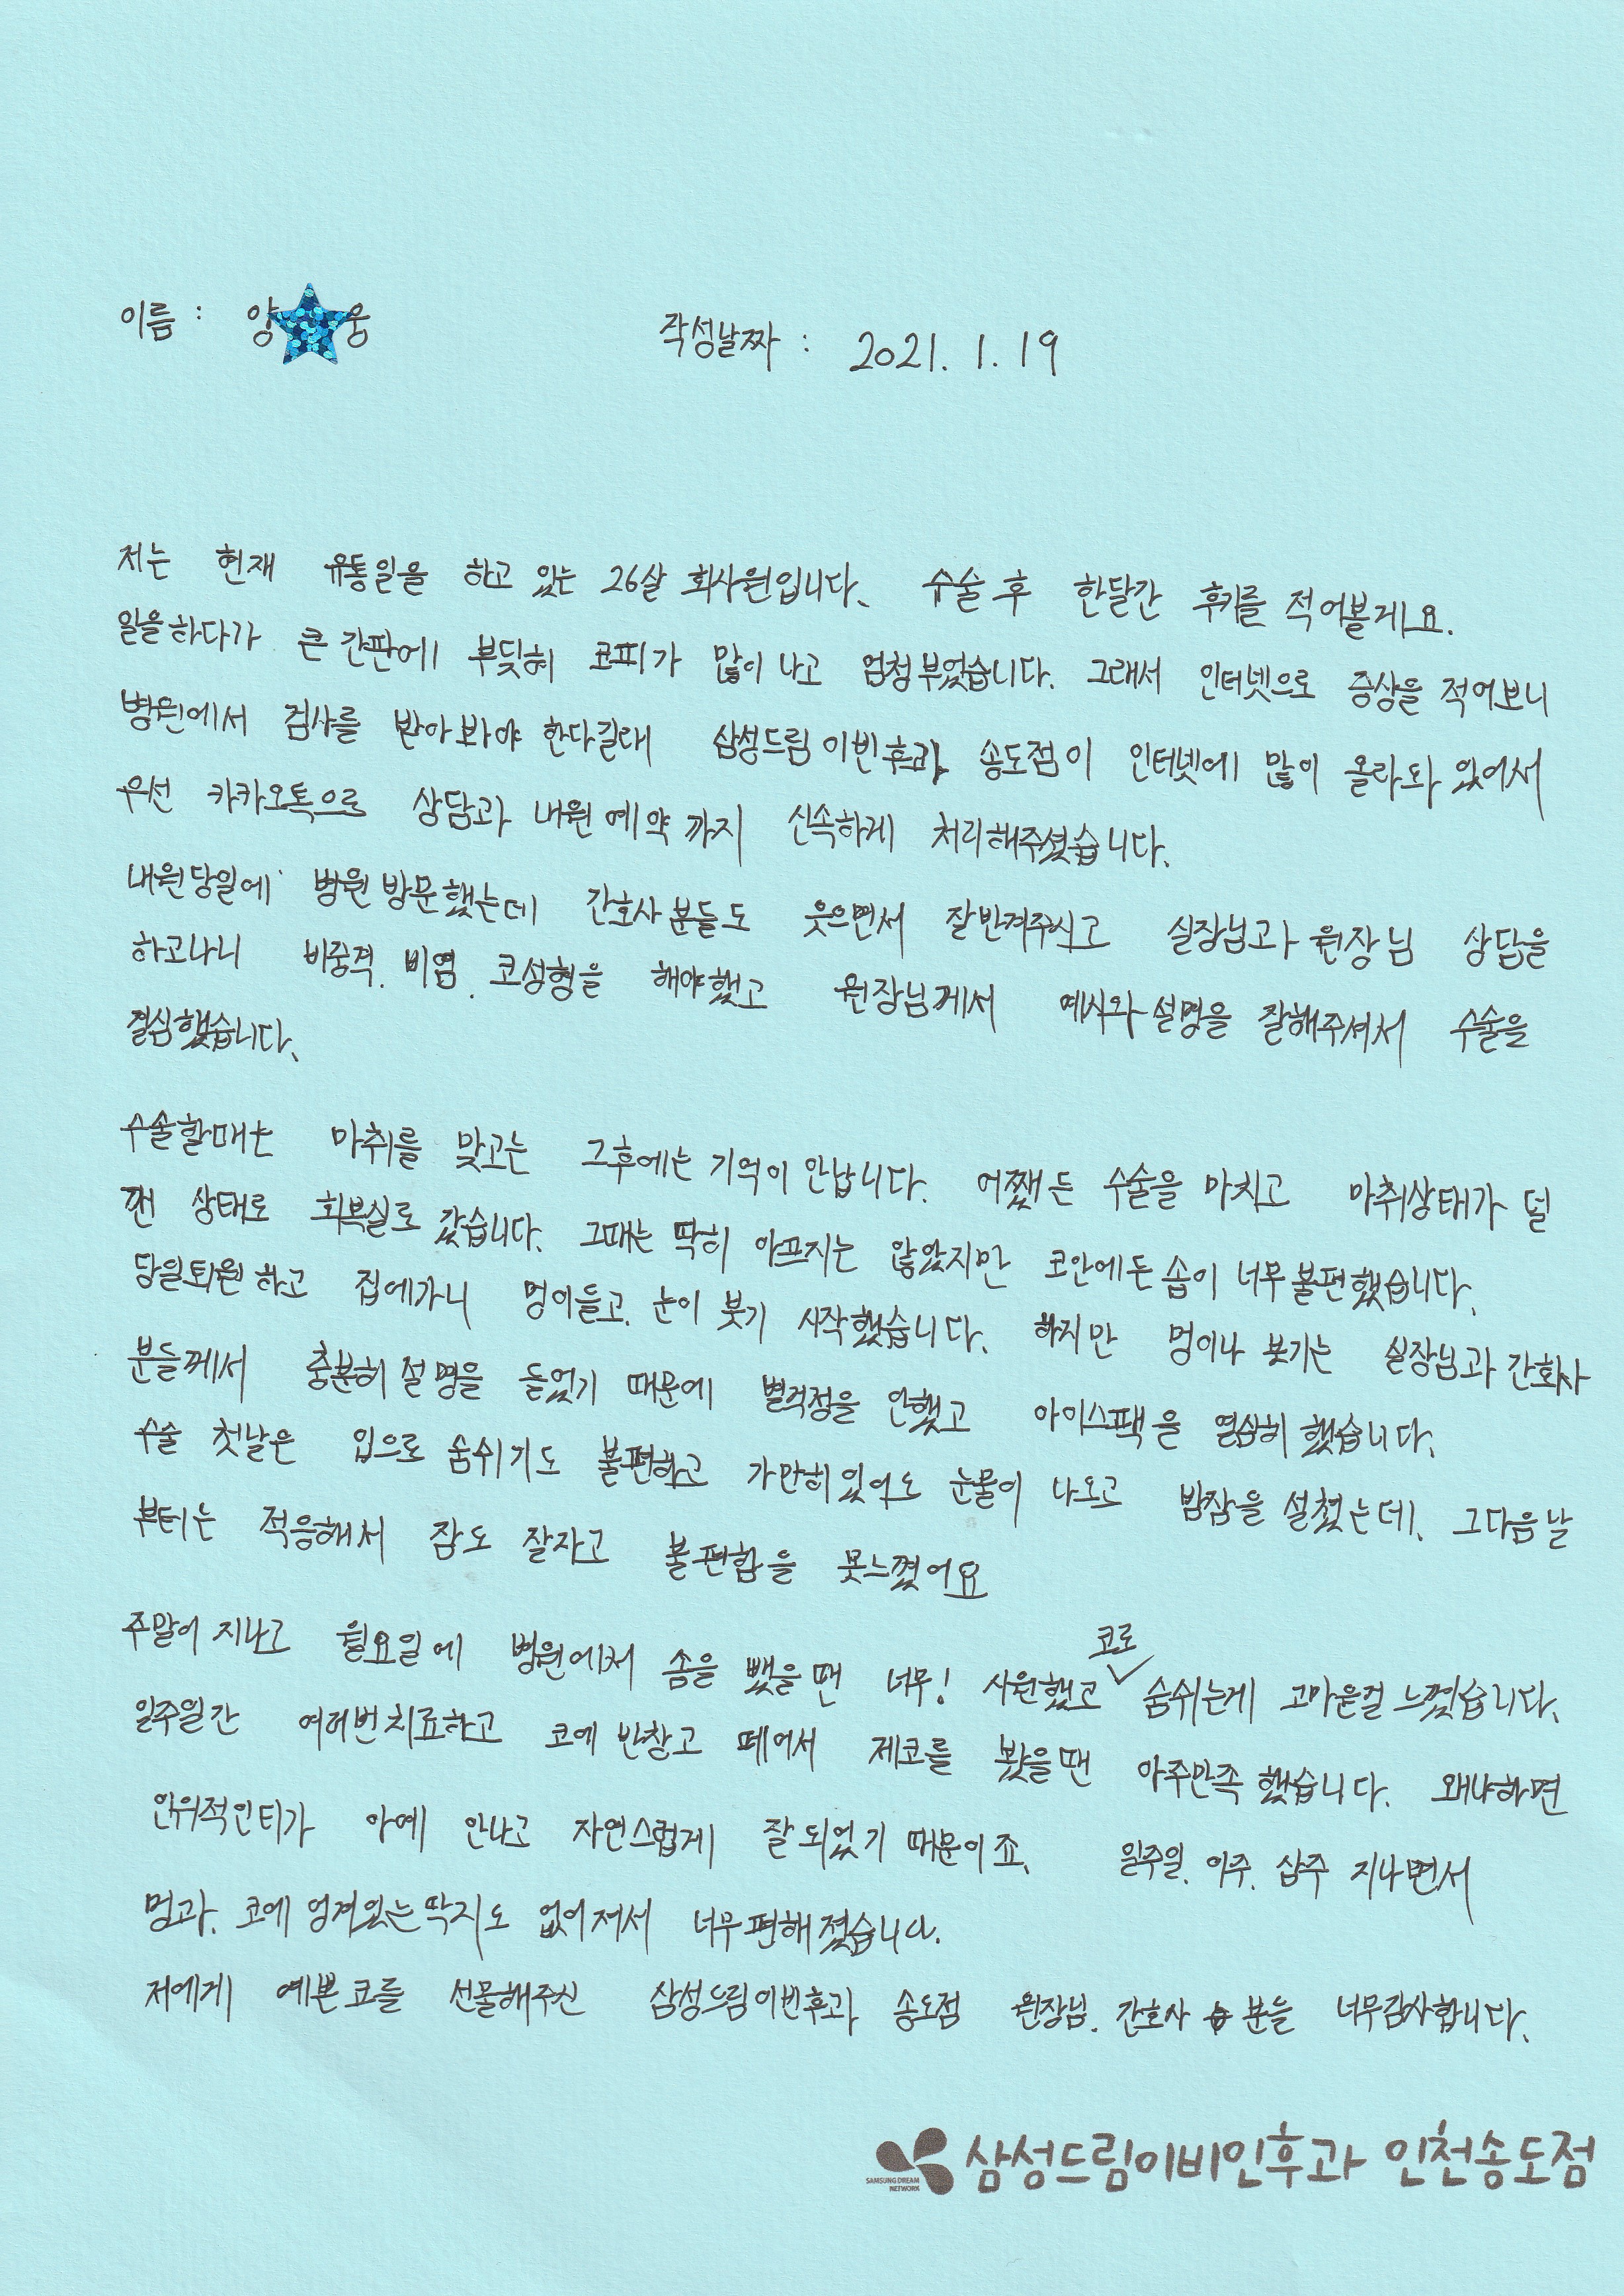 이름 : 양 웅
작성날짜 : 2021. 1. 19
저는 현재 유통일을 하고 있는 26살 회사원입니다. 수술 후 한달간 후기를 적어볼게요.
일을하다가 큰 간판에 부딪혀 코피가 많이 나고 엄청 부었습니다. 그래서 인터넷으로 증상을 적어보니
병원에서 검사를 받아봐야 한다길래 삼성드림이빈후과 송도점이 인터넷에 많이 올라와 있어서
우선 카카오톡으로 상담과 내원예약 까지 신속하게 처리해주셨습니다.
내원당일에 병원 방문했는데 간호사분들도 웃으면서 잘반겨주시고 실장님과 원장님 상담을
하고나니 비중격. 비염. 코성형을 해야했고 원장님께서 예시와 설명을 잘해주셔서 수술을
결심했습니다.
수술할때는 마취를 맞고는 그후에는 기억이 안납니다. 어쨌든 수술을 마치고 마취상태가 덜
깬 상태로 회복실로 갔습니다. 그때는 딱히 아프지는 않았지만 코안에든 솜이 너무 불편했습니다.
당일퇴원하고 집에가니 멍이들고. 눈이 붓기 시작했습니다. 하지만 멍이나 붓기는 실장님과 간호사
분들께서 충분히 설명을 들었기 때문에 별걱정을 안했고 아이스팩을 열심히 했습니다.
수술 첫날은 입으로 숨쉬기도 불편하고 가만히있어도 눈물이 나오고 밤잠을 설쳤는데. 그다음날
부터는 적응해서 잠도 잘자고 불편함을 못느꼈어요
주말이 지나고 월요일에 병원에서 솜을 뺐을땐 너무! 시원했고 코로 숨쉬는게 고마운걸 느꼈습니다.
일주일간 여러번치료하고 코에 반창고 떼어서 제코를 봤을땐 아주만족했습니다. 왜냐하면
인위적인티가 아예 안나고 자연스럽게 잘되었기 때문이죠. 일주일. 이주. 삼주 지나면서
멍과. 코에 엉겨있는딱지도 없어져서 너무편해졌습니다.
저에게 예쁜코를 선물해주신 삼성드림이빈후과 송도점 원장님. 간호사 분들 너무감사합니다.
SAMSUNG DREAM NETWORK 삼성드림이비인후과 인천송도점